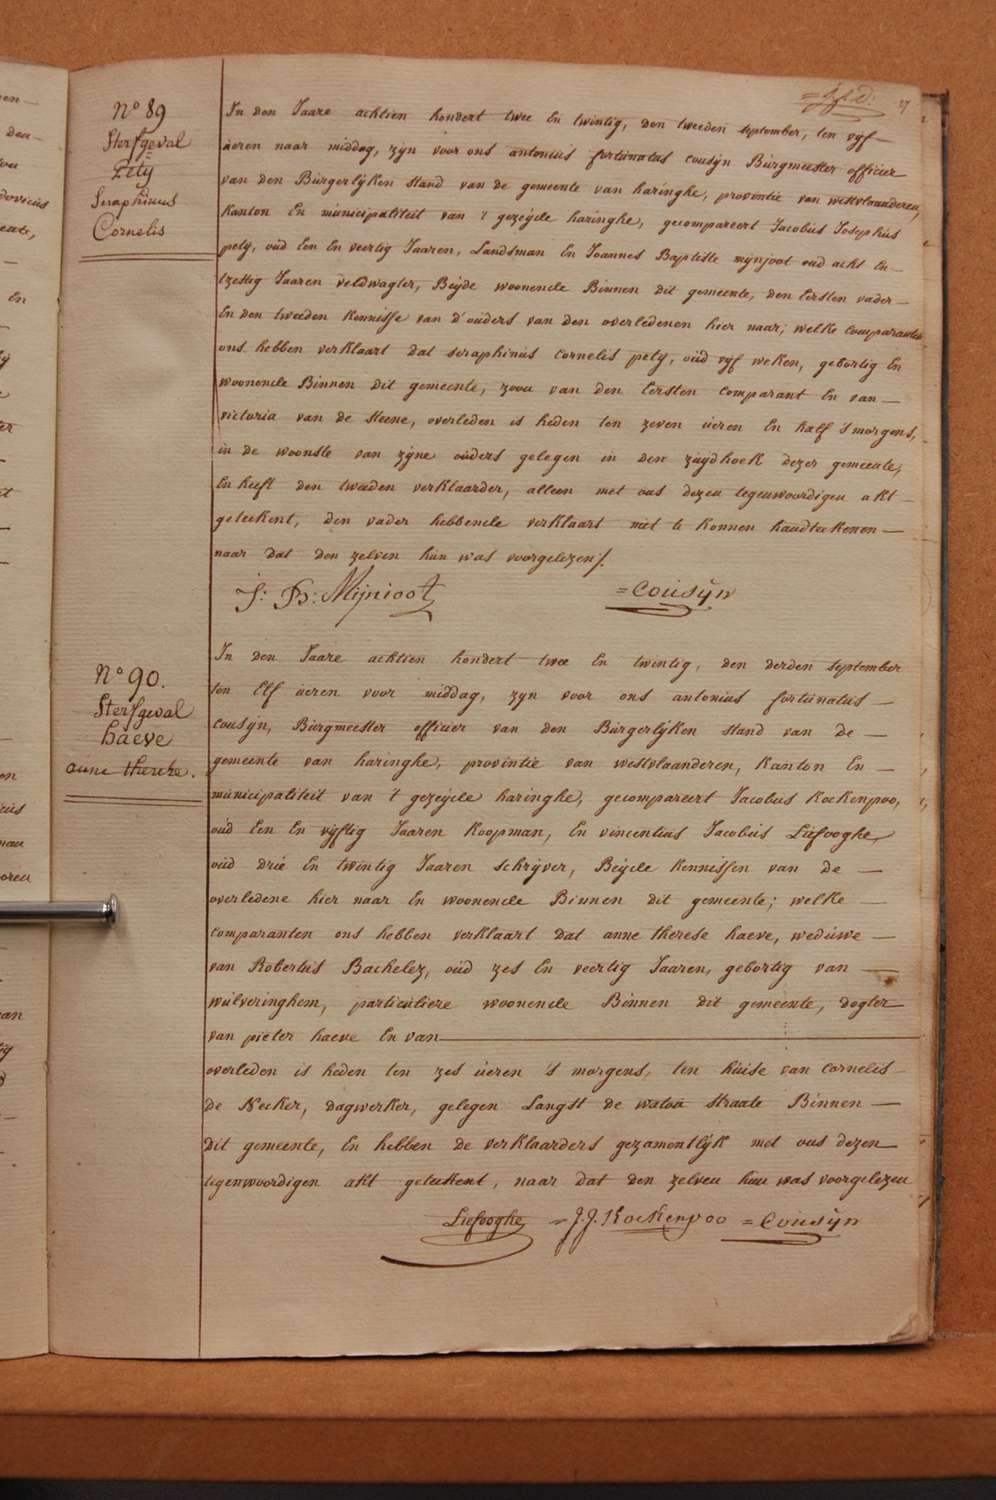 27
N° 89
Sterfgeval
Pety
Seraphinus
Cornelis
In den Jaare achtien hondert twee En twintig, den tweeden september, ten vyf
ueren naar middag, zyn voor ons antonius fortunatus cousyn Burgmeester officier
van den Burgerlyken stand van de gemeente van haringhe, provintie van westvlaanderen,
kanton En municipaliteit van 't gezeyde haringhe, gecompareert Jacobus Josephus
pety, oud Een En veertig Jaaren, Landsman En Joannes Baptiste mynjoot oud acht En
tzestig Jaaren veldwagter, Beyde woonende Binnen dit gemeente, den Eersten vader
En den tweeden kennisse van d'ouders van den overledenen hier naar; welke comparanten
ons hebben verklaart dat seraphinus cornelis pety, oud vyf weken, gebortig En
woonende Binnen dit gemeente, zoou van den Eersten comparant En van
victoria van de steene, overleden is heden ten zeven ueren En half 's morgens,
in de woonste van zyne ouders gelegen in den zuydhoek dezer gemeente,
En heeft den tweeden verklaarder, alleen met ous dezen tegenwoordigen akt
geteekent, den vader hebbende verklaart niet te konnen handteekenen
naar dat den zelven hun was voorgelezen/.
J: B: Mijnioot
=Cousyn
N° 90.
Sterfgeval
haeve
anne therese.
In den Jaare achtien hondert twee En twintig, den derden september
ten Elf ueren voor middag, zyn voor ons antonius fortunatus
cousyn, Burgmeester officier van den Burgerlyken stand van de
gemeente van haringhe, provintie van westvlaanderen, kanton En
municipaliteit van 't gezeyde haringhe, gecompareert Jacobus Kockenpoo,
oud Een En vyftig Jaaren koopman, En vincentius Jacobus Liefooghe,
oud drie En twintig Jaaren schryver, Beyde kennissen van de
overledene hier naar En woonende Binnen dit gemeente; welke
comparanten ons hebben verklaart dat anne therese haeve, weduwe
van Robertus Bachelez, oud zes En veertig Jaaren, gebortig van
wulveringhem, particuliere woonende Binnen dit gemeente, dogter
van pieter haeve En van
overleden is heden ten zes ueren 's morgens, ten huise van cornelis
de Necker, dagwerker, gelegen Langst de watou straate Binnen
dit gemeente, En hebben de verklaarders gezamentlyk met ous dezen
tegenwoordigen akt geteekent, naar dat den zelven hun was voorgelezen
Liefooghe
=J.J. Kockenpoo
=Cousyn